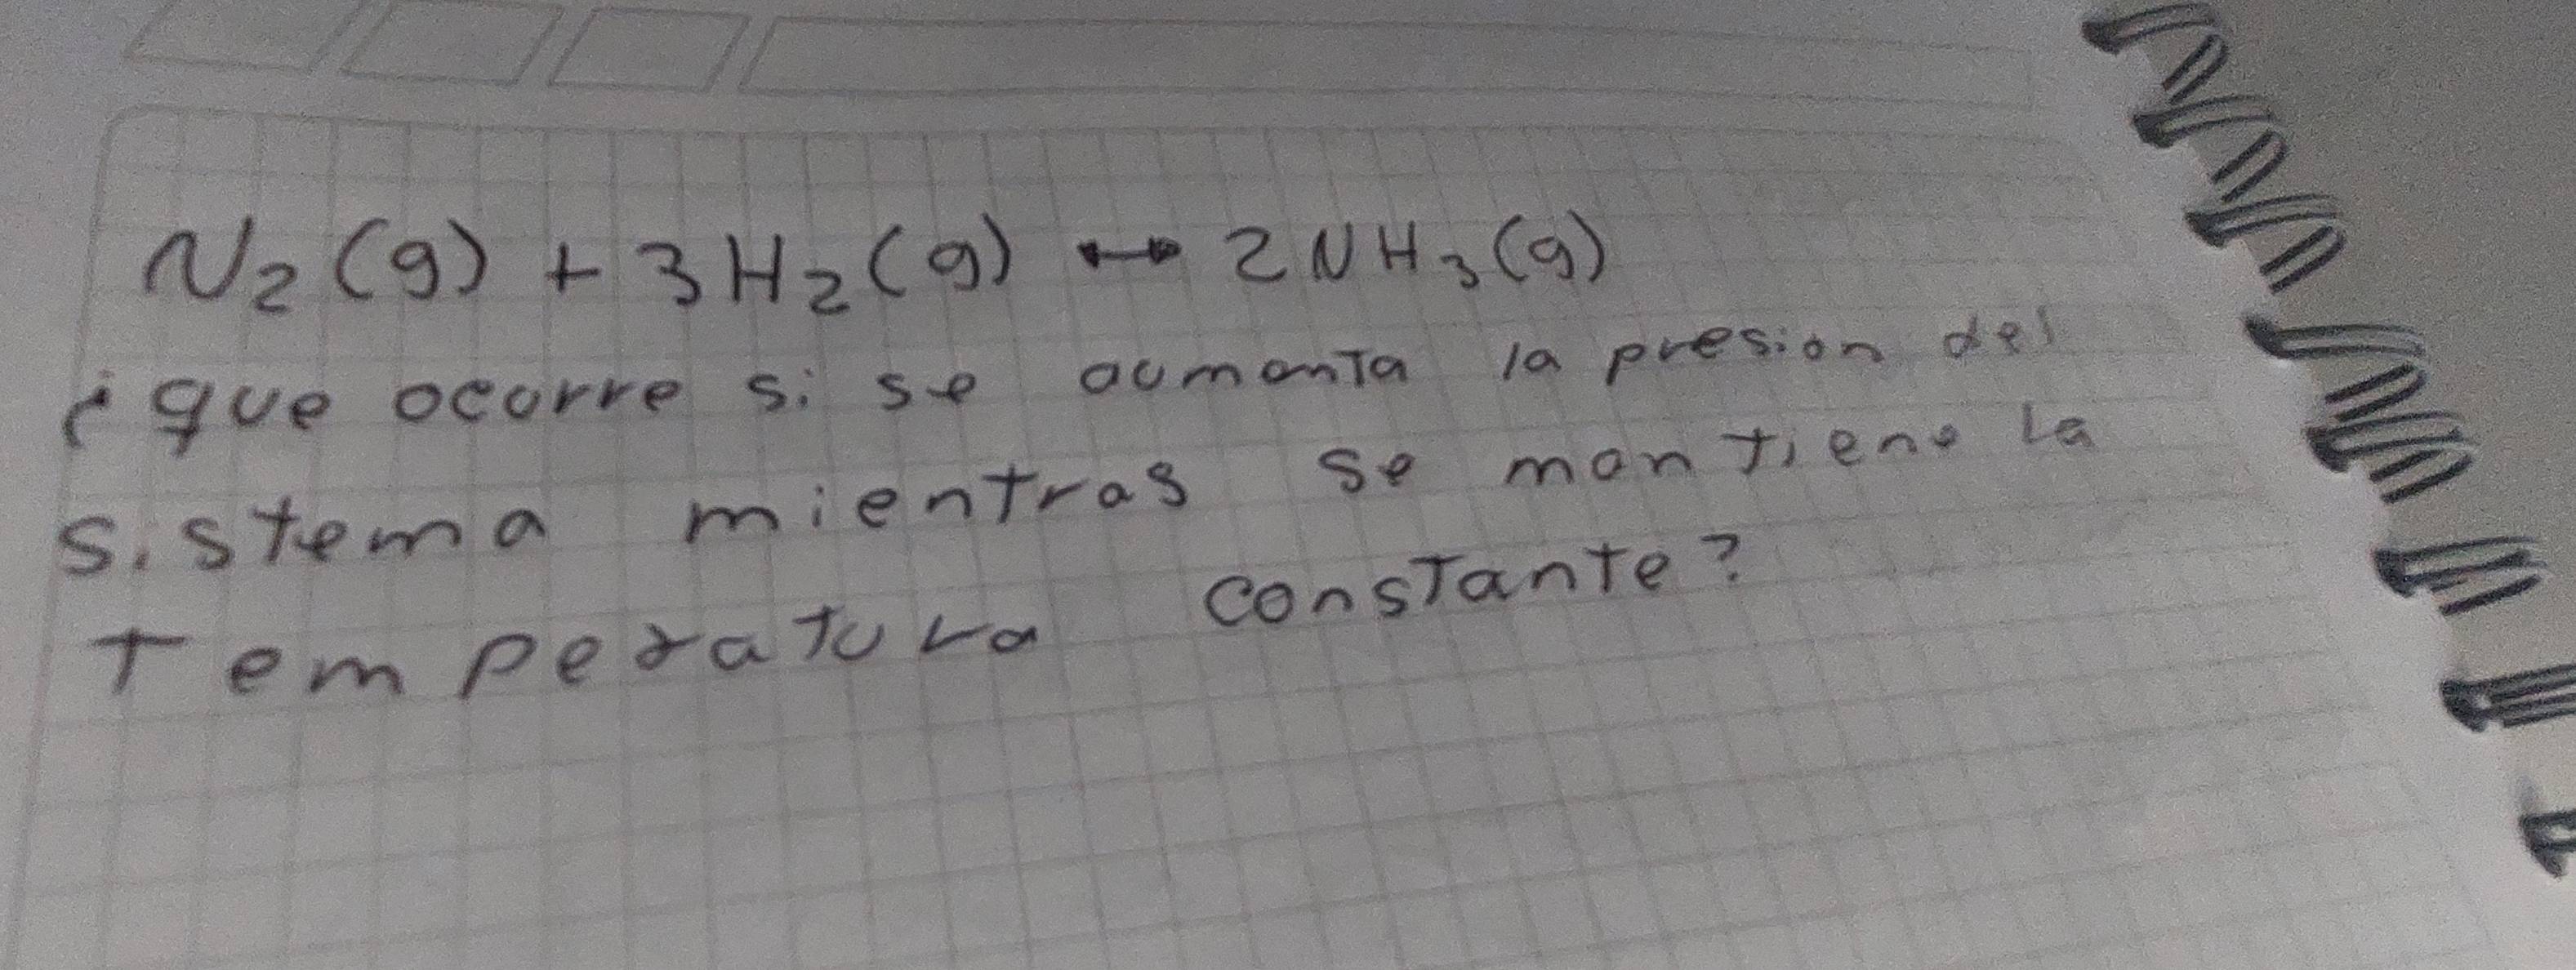 N₂(g) + 3H₂(g) ↔ 2NH₃(g)
¿que ocurre si se aumenta la presion del
sistema mientras se mantiene la
Temperatura constante?